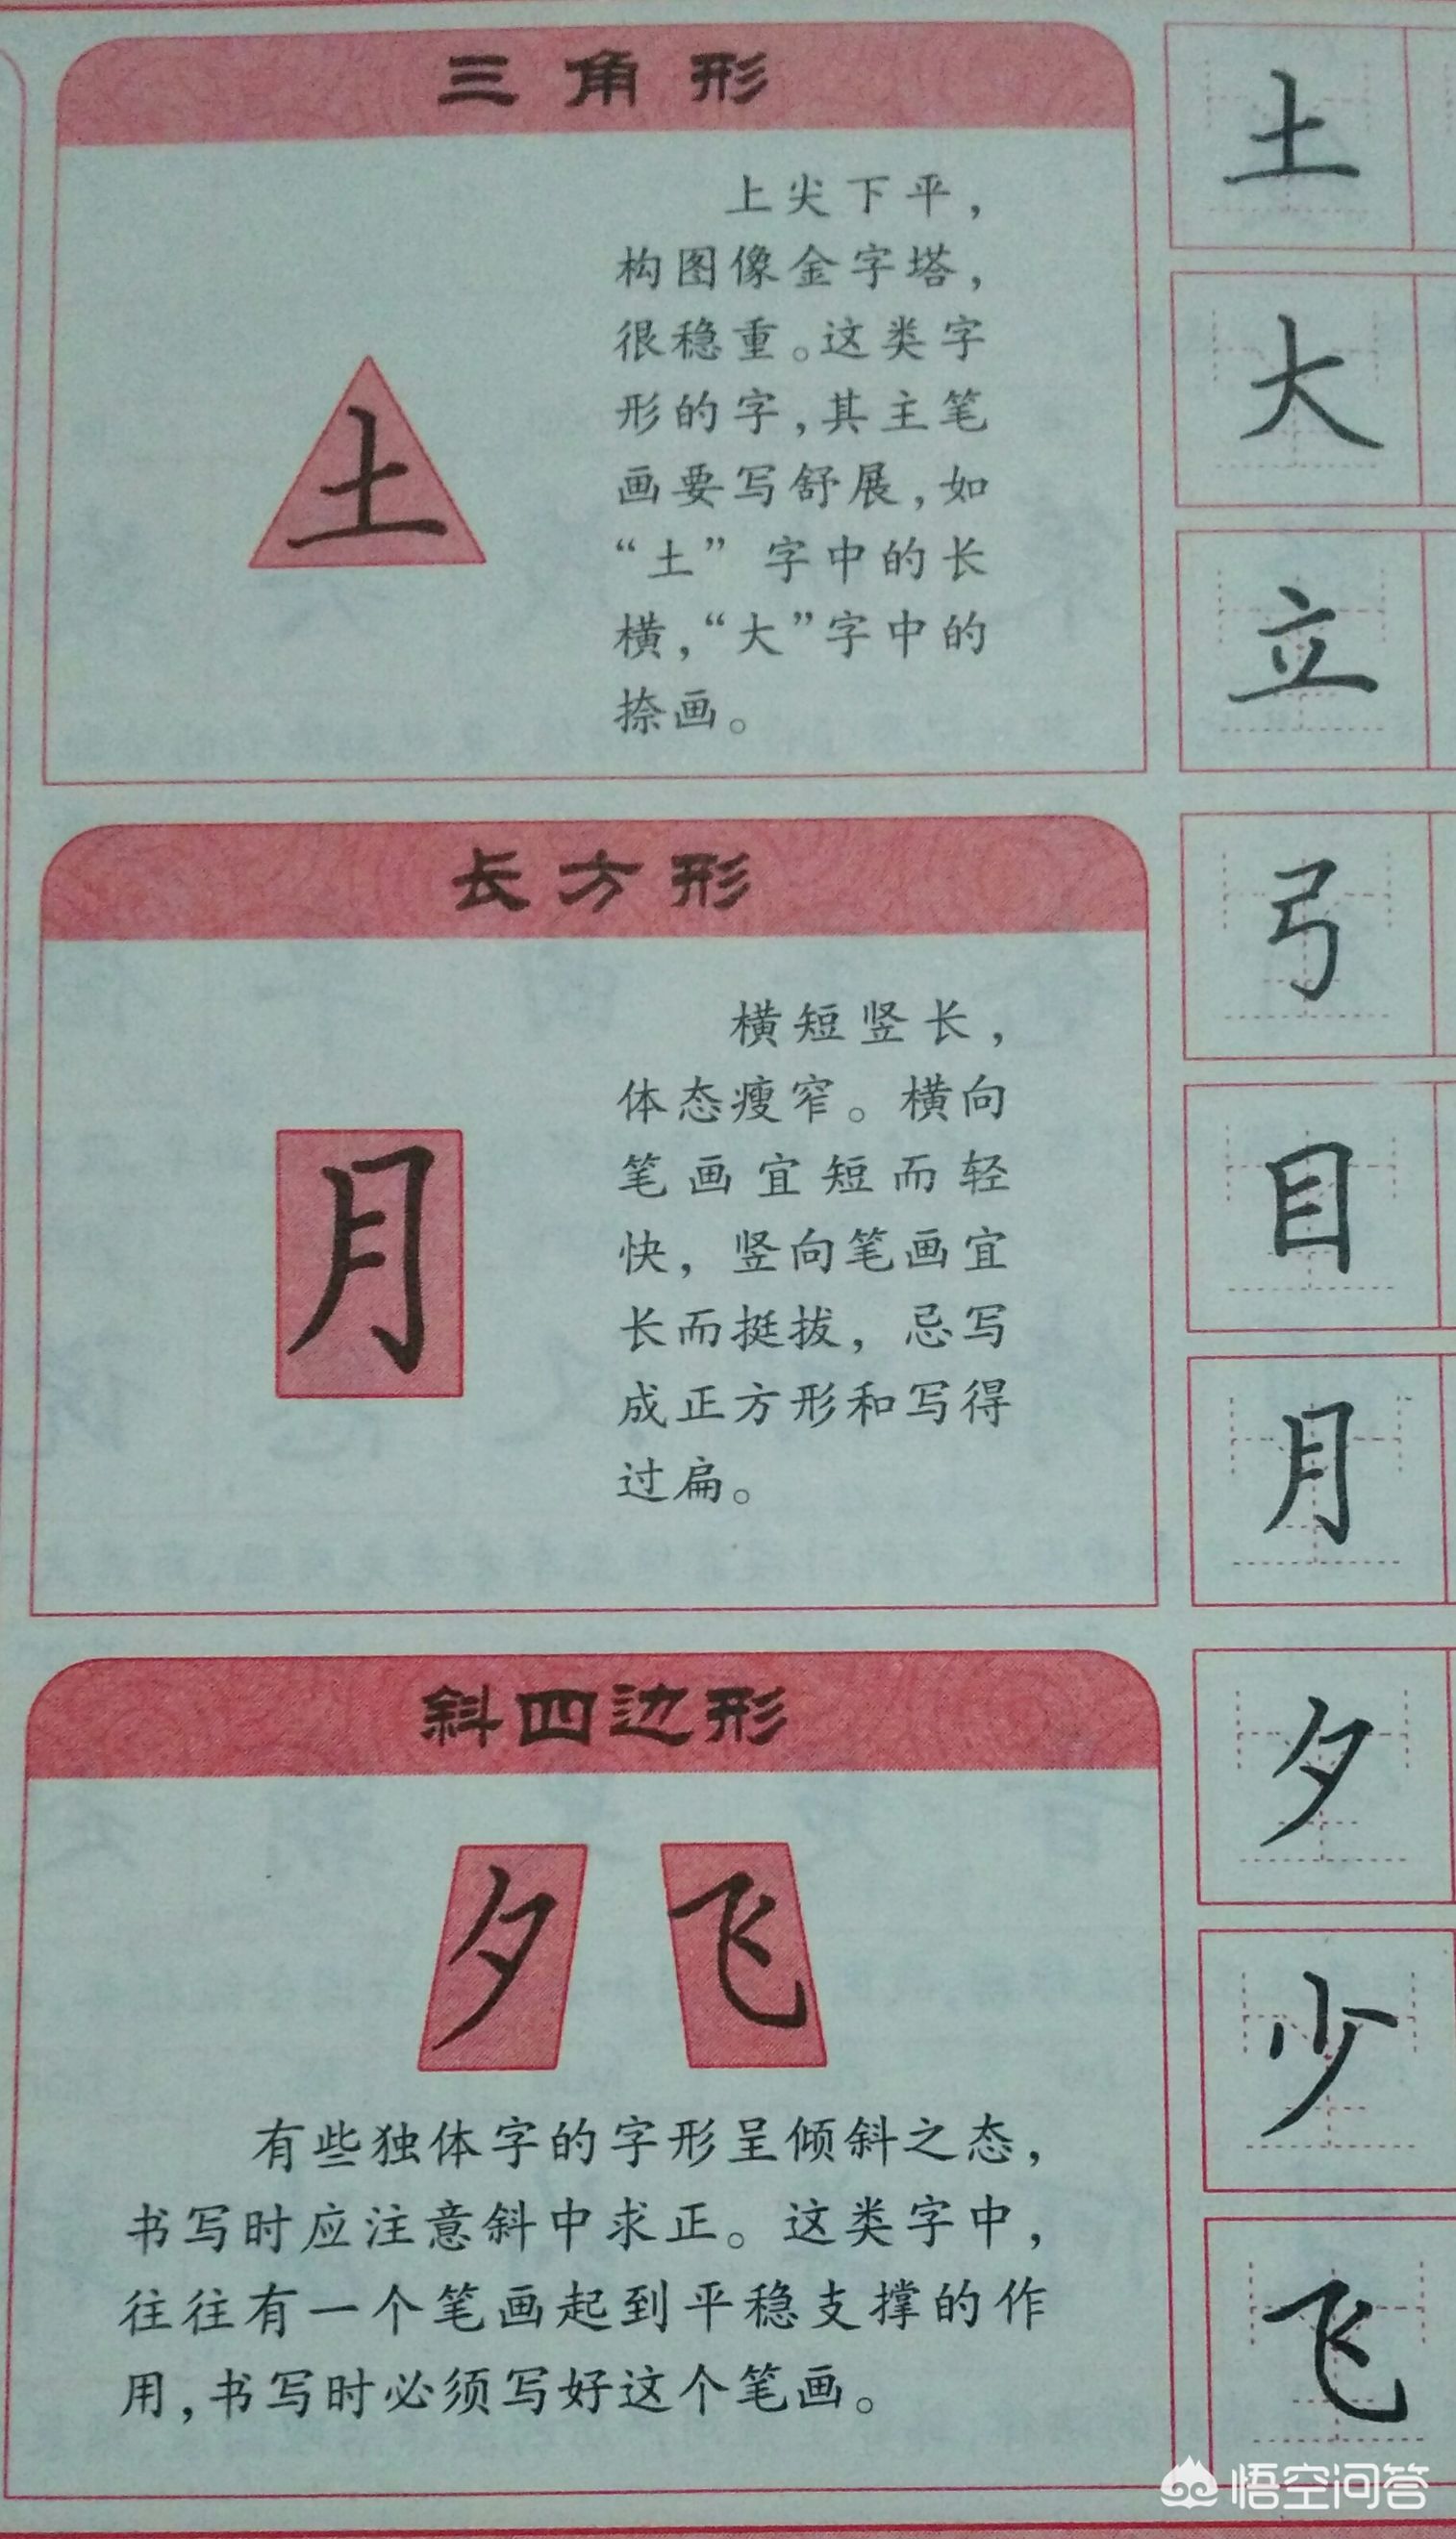 三角形
土
上尖下平，
构图像金字塔，
很稳重。这类字
形的字，其主笔
画要写舒展，如
“土”字中的长
横，“大”字中的
捺画。
土
大
立
长方形
月
横短竖长，
体态瘦窄。横向
笔画宜短而轻
快，竖向笔画宜
长而挺拔，忌写
成正方形和写得
过扁。
弓
目
月
斜四边形
夕 飞
有些独体字的字形呈倾斜之态，
书写时应注意斜中求正。这类字中，
往往有一个笔画起到平稳支撑的作
用，书写时必须写好这个笔画。
夕
少
飞
悟空问答